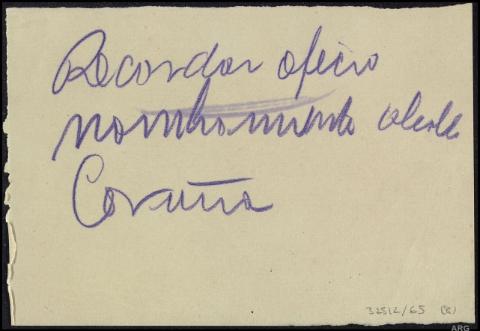 Recordar oficio
nombramiento alcalde
Coruña
32512/65 (8)
ARG